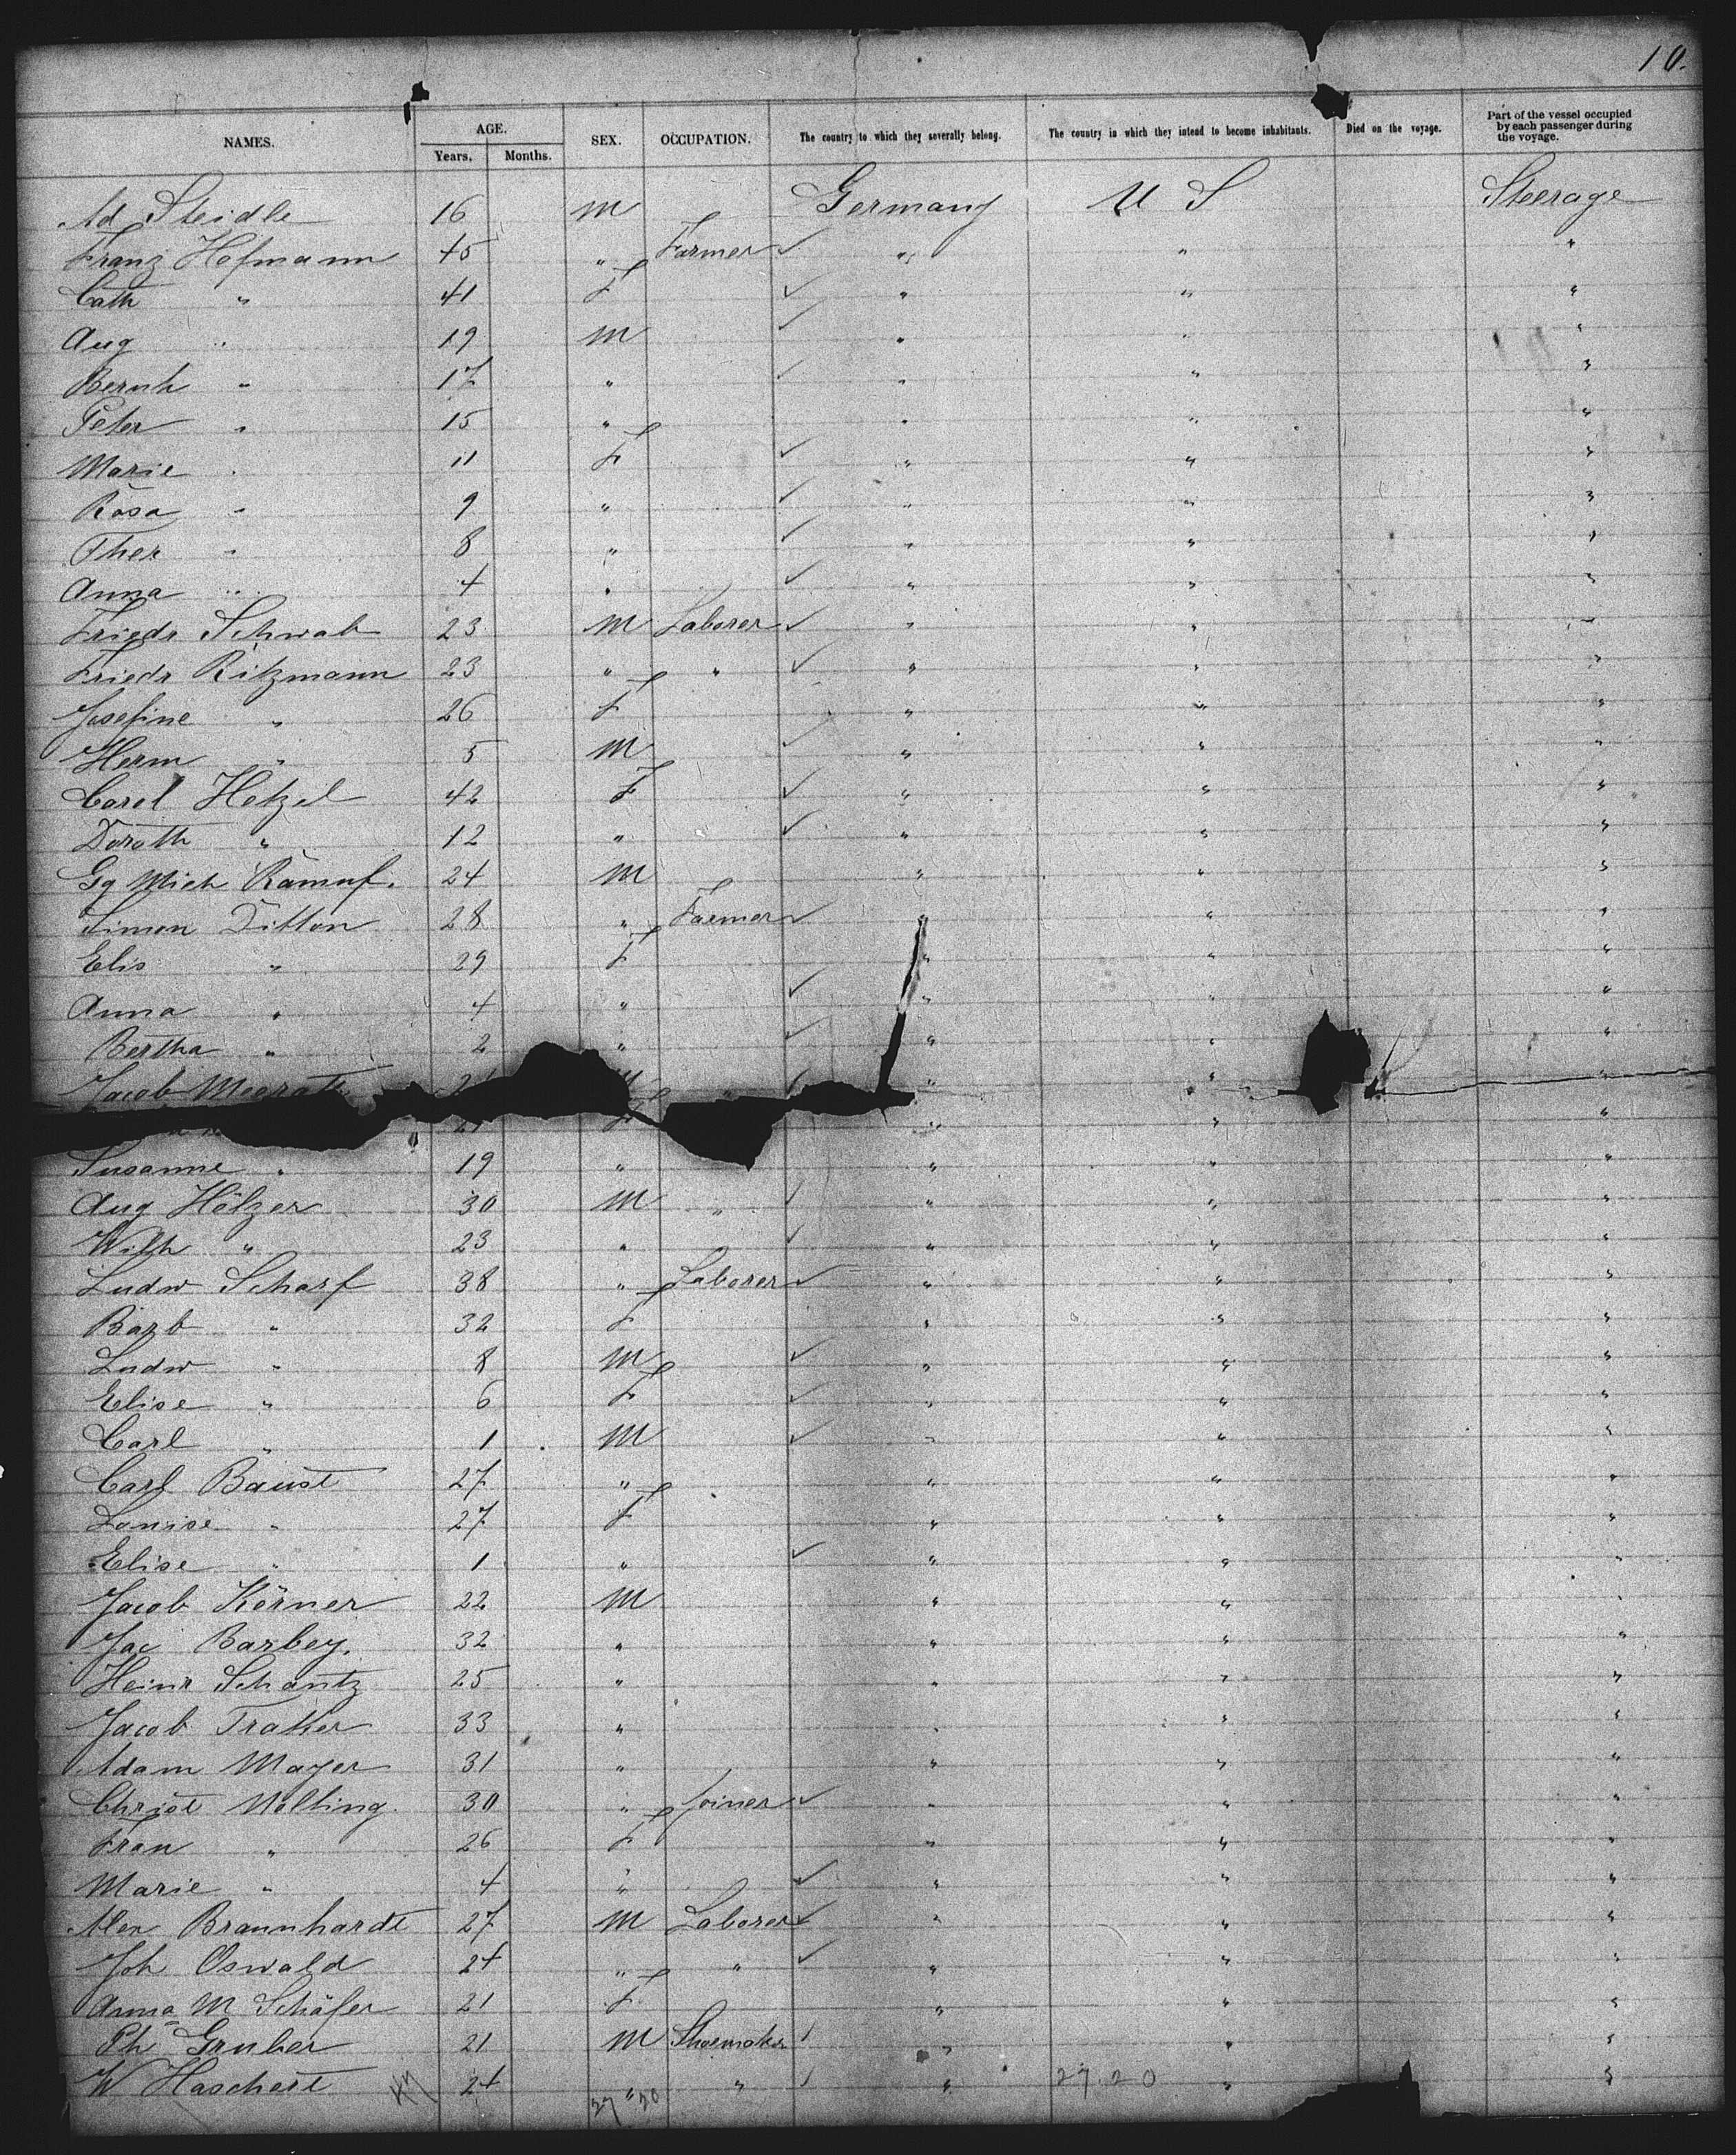 10.
NAMES. AGE. Years. Months. SEX. OCCUPATION. The country to which they severally belong. The country in which they intend to become inhabitants. Died on the voyage. Part of the vessel occupied by each passenger during the voyage.
Ad Steidle 16 M Germany U S Steerage
Franz Hofmann 45 " Farmer ✓ " " "
Cath " 41 F ✓ " " "
Aug " 19 M ✓ " " "
Bernh " 17 " ✓ " " "
Peter " 15 " " " "
Marie " 11 F ✓ " " "
Rosa " 9 " ✓ " " "
Ther " 8 " ✓ " " "
Anna " 4 " ✓ " " "
Friedr Schwab 23 M Laborer ✓ " " "
Friedr Ritzmann 23 " " ✓ " " "
Josefine " 26 F " " "
Herm " 5 M ✓ " " "
Carol Hetzel 42 F ✓ " " "
Doroth " 12 " ✓ " " "
Gg Mich 24 M " " "
Simon Ditton 28 " Farmer ✓ " " "
Elis " 29 F " " "
Anna " 4 " ✓ " " "
Bertha " 2 " ✓ " " "
Jacob M " ✓ " " "
F " " "
Susanne " 19 " " " "
Aug Hölzer 30 M " ✓ " " "
Wilh " 23 " ✓ " " "
Ludw Scharf 38 " Laborer ✓ " " "
Barb " 32 F " " "
Ludw " 8 M ✓ " " "
Elise " 6 F ✓ " " "
Carl " 1 M ✓ " " "
Carl Baust 27 " " " "
Louise " 27 F " " "
Elise " 1 " ✓ " " "
Jacob Körner 22 M " " "
Jac Barbey. 32 " " " "
Heinr Schantz 25 " " " "
Jacob Traker 33 " " " "
Adam Mayer 31 " " " "
Christ Nolting. 30 " Joiner ✓ " " "
Fran " 26 F " " "
Marie " 4 " ✓ " " "
Alex Braunhardt 27 M Laborer ✓ " " "
Joh Oswald 24 " " ✓ " " "
Anna M Schäfer 21 F " " "
Ph Gruber 21 M Shoemaker ✓ " " "
W Haschert 24 " " ✓ " " "
47 27 20 27.20